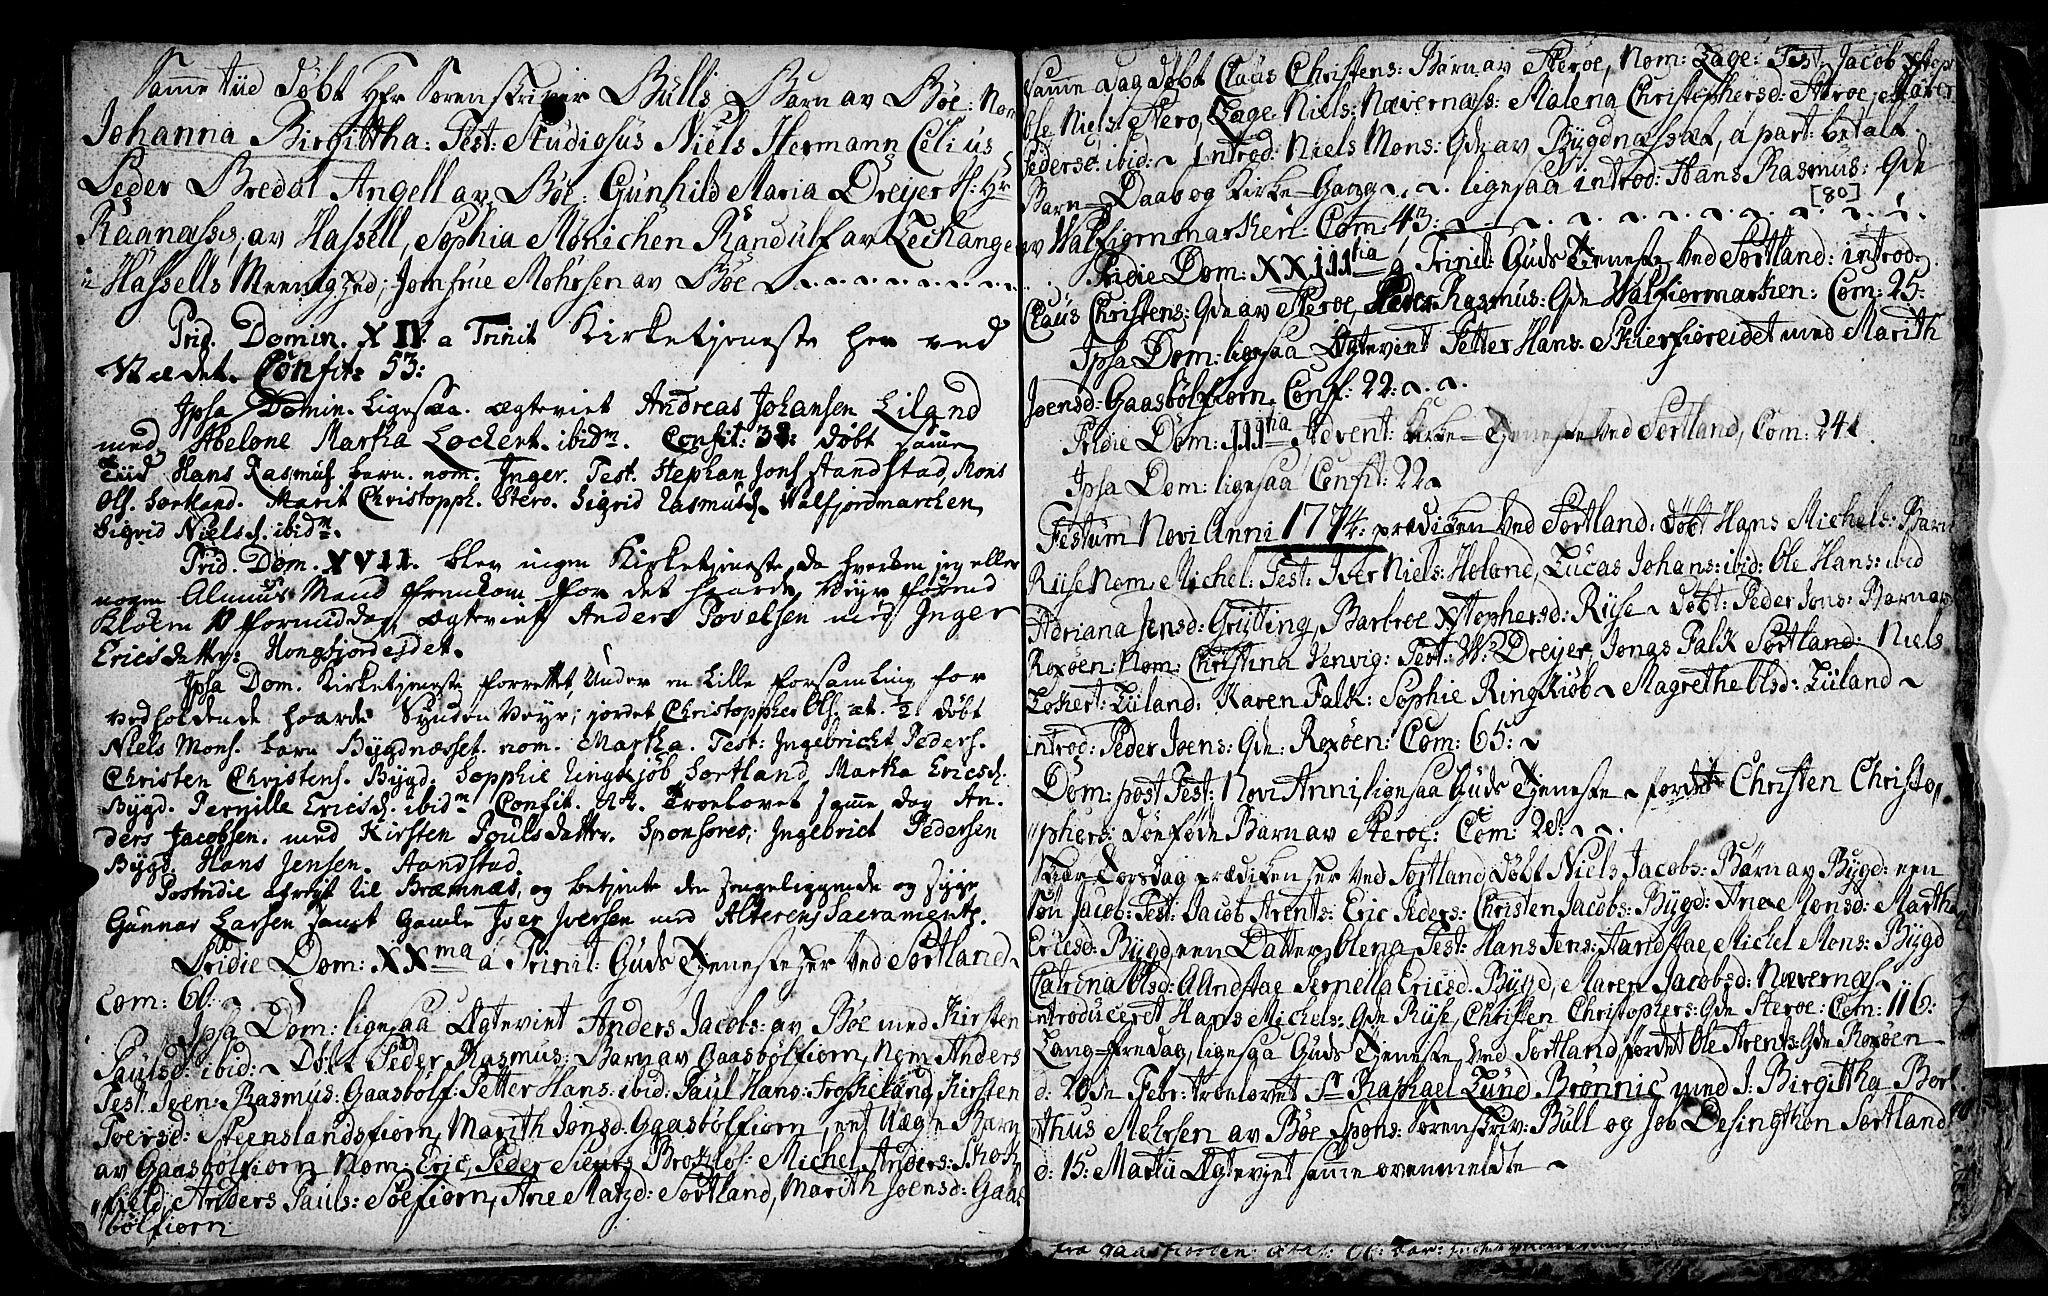 Samme tiid Døbt Hr Sorenskriver Bulls Barn av Bøe: Nom
Johanna Birgittha: Test: Studiosus Niels Hermann Celius
Peder Bredal Angell av Bøe: Gunhild Maria Dreyer Hr
Raanæsses, av Hassell, Sophia Mønichen Randulf av Lechange
i Hassells Meenighed; Jomfrue Mohrsen av Bøe
Prid. Domin. XIV a Trinit Kirketjeneste her ved
Stædet. Confit: 53:
Ipsa Domin. Ligesaa. ægteviet Andreas Johansen Liland
med Abelone Martha Lochert. ibidm. Confit: 38: døbt samme
Tiid Hans Rasmus. barn. nom: Inger. Test. Stephan Jons standstad, Mons
Ols. Sortland. Marit Christopph. Stero. Sigrid Rasmusd. Walfjordmarchen,
Sigrid Nielsd. ibidm.
Prid. Dom. XVII. blev ingen Kirketjeneste, da hverken jeg eller
nogen Almues Mand fremkom for det haarde Veyr førend
Kloken 10 formiddag, ægteviet Anders Povelsen med Inger
Ericsdatter Hongfjordejdet.
Ipsa Dom. Kirketjeneste forrettet, Under en Lille forsamling for
vedholdende haarde Synden Veyr; jordet Christoppher Ols. æt. 1/2. døbt
Niels Mons. barn Bygdnæsset. nom. Martha. Test: Ingebricht Peders.
Christen Christens. Bygd. Sopphie Ringkjøb Sortland, Martha Ericsd.
Bygd. Pernille Ericsd. ibidm Confit. Troelovet samme dag An-
ders Jacobsen. med Kirsten Poulsdatter. Sponsores; Ingebrict Pedersen
Bygd. Hans Jensen. Aandstad.
Postridie afrejst til Bræmnæs, og betjente den sengeliggende og syge
Gunnar Larsen samt Gamle Iver Iversen med Alterens Sacramente.
Pridie Dom: XXma á Trinit: Guds Tjeneste her ved Sortland
Com: 60:
Ipsa Dom: ligesaa Ægteviet Anders Jacobs: av Bøe med Kirsten
Paulsd: ibid: Døbt Peder Rasmus: Barn av Gaasbølfiorn, Nom: Anders
Test: Joen: Rasmus: Gaasbølf: Petter Hans: ibid: Paul Hans: Froskeland, Kirsten
Joersd: Steenslandsfiorn, Marith Jonsd: Gaasbølfiorn, eet Uægte Barn
av Gaasbølfiorn Nom: Eric, Peder Siurs Brokløs: Michel Anders: Skog
field, Anders Pauls: Søefiorn, Ane Matzd: Sortland, Marith Joensd: Gaas
bølfiorn
Samme dag døbt Claus Christens: Barn av Steroe, Nom: Lage: Test: Jacob Xstop
ble Niels: Stero, Lage Niels: Nævernæs: Malena Christophersd: Steroe,
Pedersd: ibid: Introd: Niels Mons: Qde av Bygdnæsset, á part: betalt
Barn-Daab og Kirke-Gang. ligesaa introd: Hans Rasmus: Qde
[80]
av Walfiormarken: Com: 43:
Pridie Dom: XXIIItia á Trinit: Guds Tjeneste ved Sortland: introd:
Claus Christens: Qde av Steroe, Peder Rasmus: Qde Walfiormarken: Com: 25:
Ipsa Dom: ligesaa Ægteviet Petter Hans: Skierfioreidet med Marith
Joensd: Gaasbølfiorn, Conf: 22:
Pridie Dom: IIItia Advent: Kirke-Tjeneste ved Sortland, Com: 24
Ipsa Dom: ligesaa Confit: 22
Festum Novi Anni 1774: prædiken ved Sortland: døbt Hans Michels: Barn
Riise Nom: Michel: Test: Iver Niels: Holand, Lucas Johans: ibid: Ole Hans: ibid
Adriana Jensd: Grytting, Barbroe Xstophersd: Riise døbt: Peder Jons: Barn av
Roxøen: Nom: Christina Venvig: Test: W: Dreyer, Jonas Falk Sortland: Niels
Lokert: Liiland: Karen Falk: Sophie RingKiøb Magrethe Olsd: Liiland
introd: Peder Joens: Qde: Roxøen: Com: 65:
Dom: post Fest: Novi Anni, ligesaa Guds Tjeneste jordet Christen Christo
phers: dønføde Barn av Steroe: Com: 28:
Skiær Torsdag prædiken her ved Sortland, døbt Niels Jacobs: Barn av Bygd: een
Søn Jacob: Test: Jacob Arents: Eric Peders: Christen Jacobs: Bygd: Ane Monsd: Martha
Ericsd: Bygd, een Datter Olena, Test: Hans Jens: Aandstae, Michel Mons: Bygd
Catrina Olsd: Aandstae Pernella Ericsd: Bygd, Maren Jacobsd: Nævernæs
introduceret Hans Michels: Qde Riise, Christen Christophers: Qde Steroe: Com: 116:
Lang-fredag, ligesaa Guds Tjeneste ved Sortland, jordet Ole Arents: Qde Roxøen
d: 20de Febr: troelovet Sr Raphael Lund Brønnic med J: Birgittha Bor
thus Mohrsen av Bøe Spons: Sorenskriv: Bull og Job Desingthon Sortland
d: 15: Martii Ægteviet samme ovenmeldte